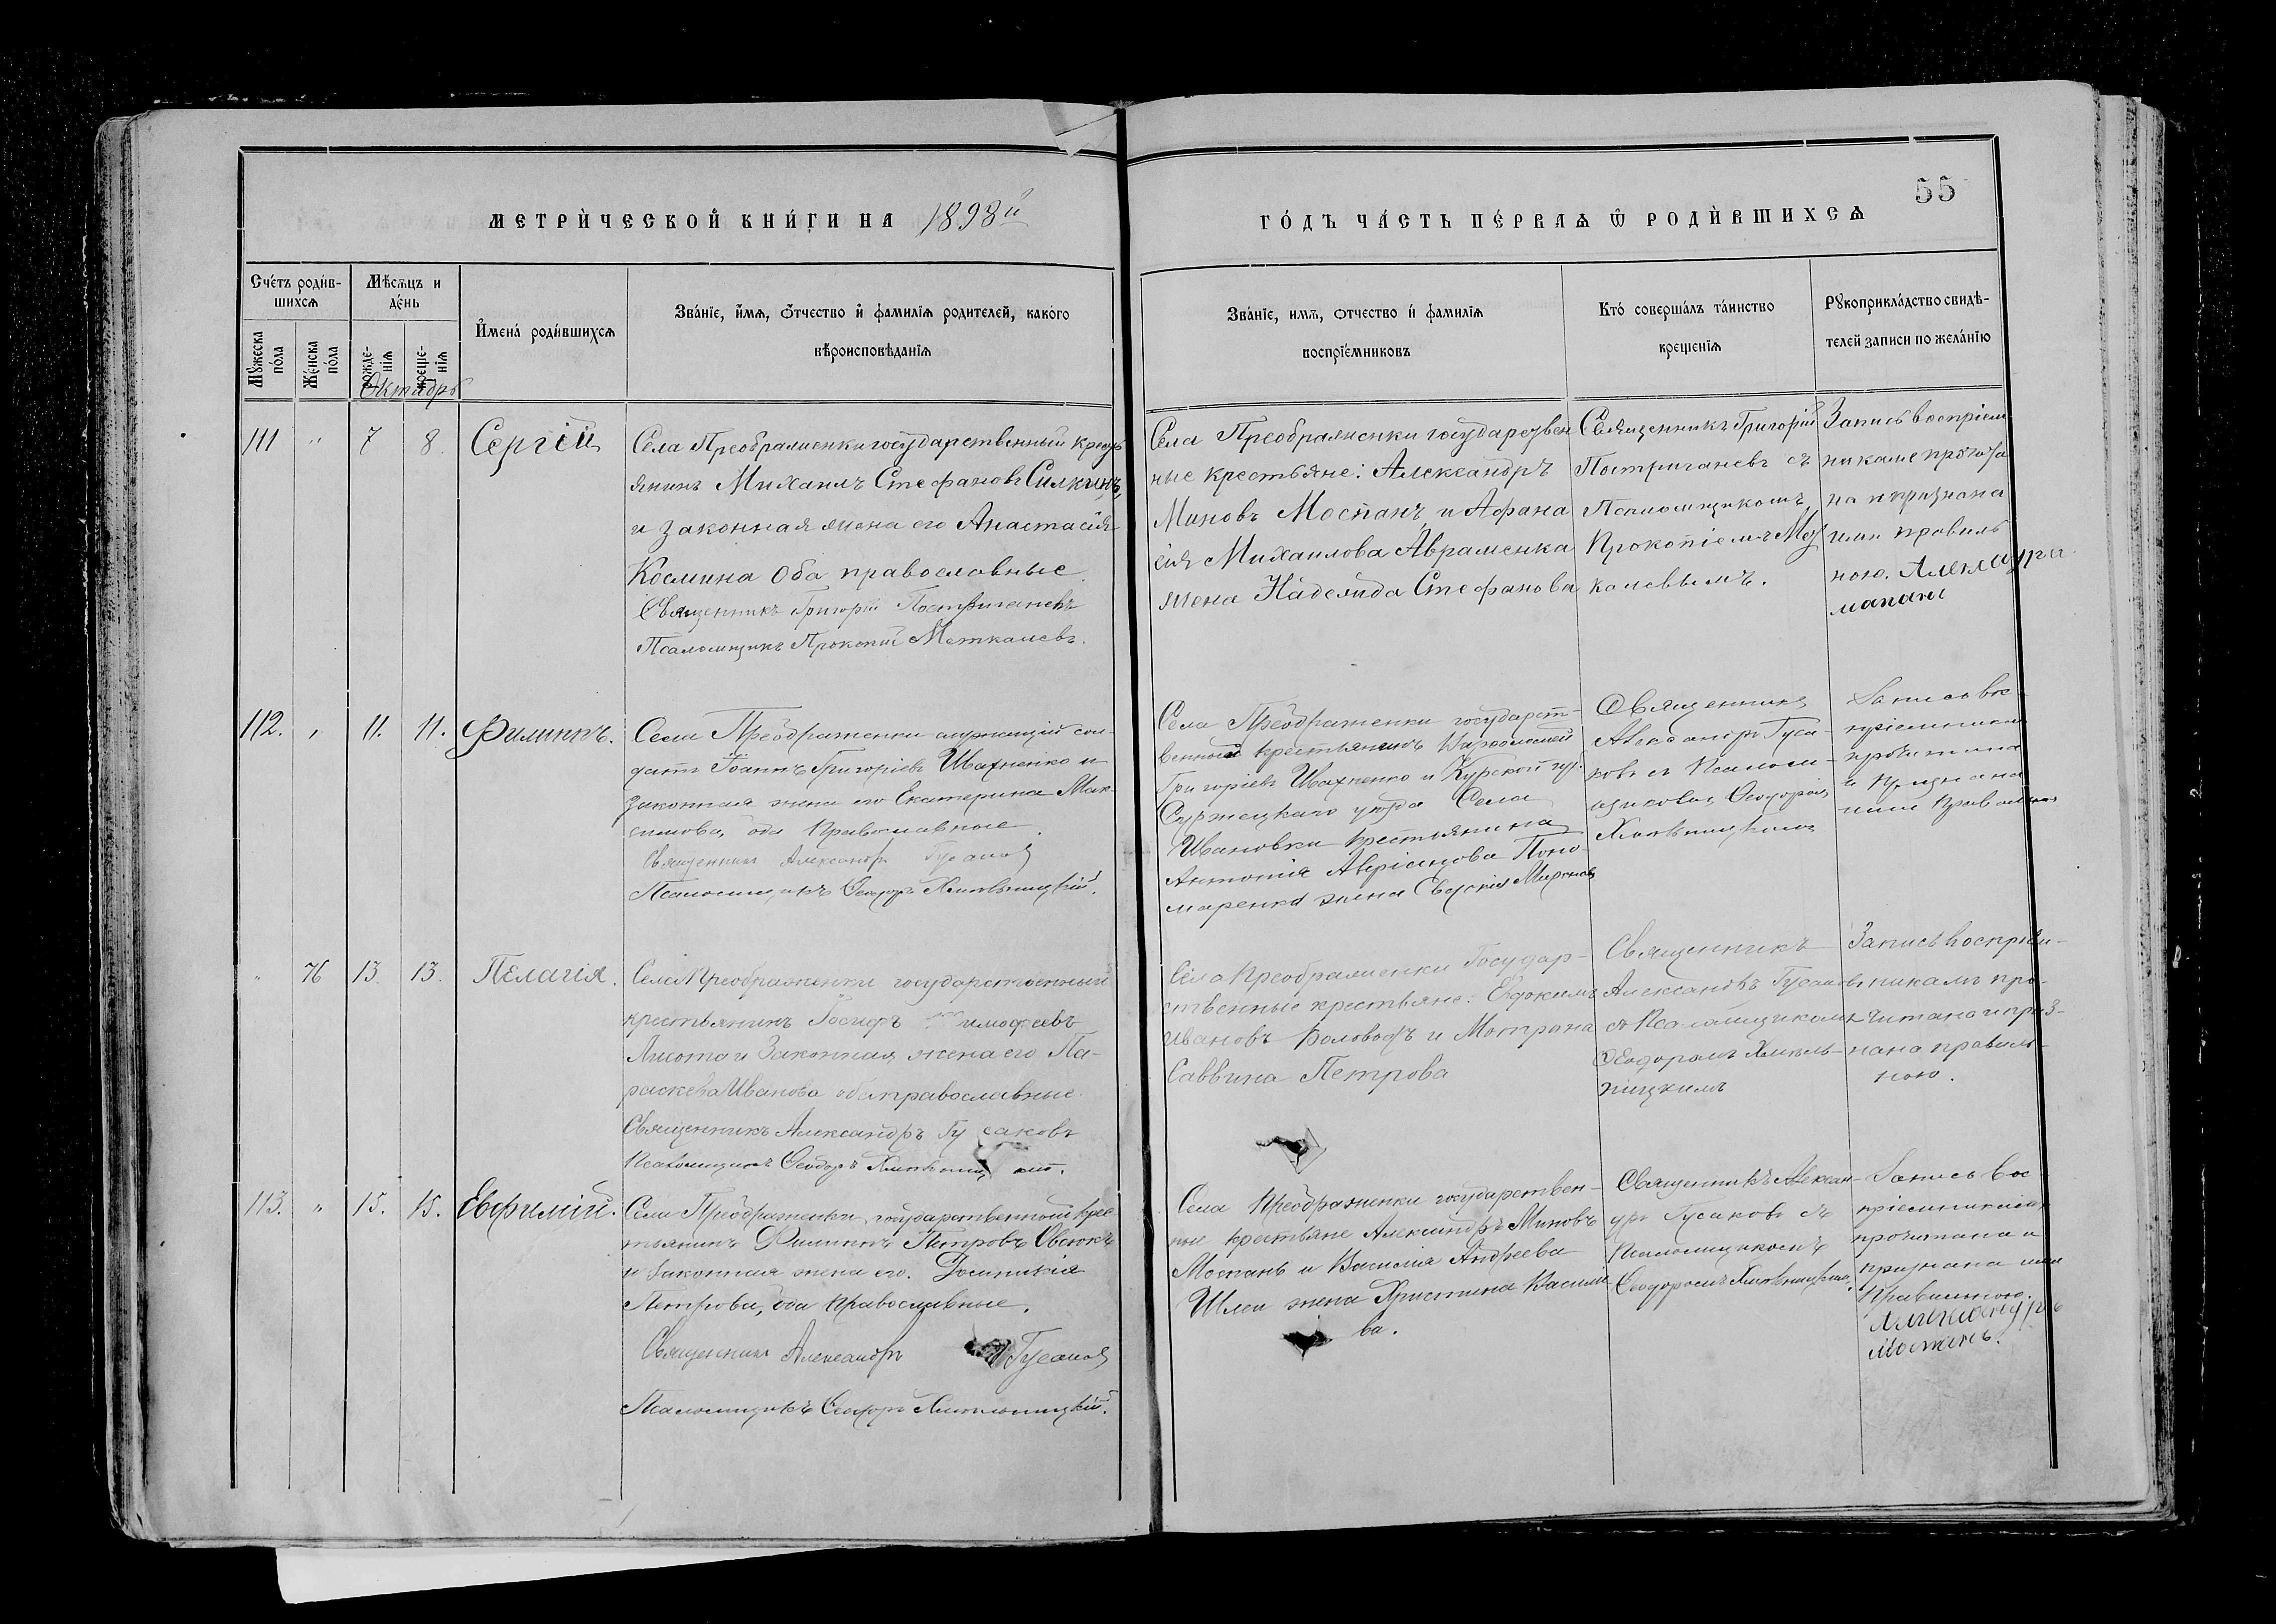 55
МЕТРИ́ЧЕСКОЙ КНИ́ГИ НА 1898й
ГО́ДЪ ЧА́СТЬ ПЕ́РВАѦ Ѽ РОДИ́ВШИХСѦ
Счетъ роди́в-
шихсѧ
Мꙋжеска
по́ла
Же́нска
по́ла
Мѣсѧцъ и
де́нь
рожде-
нїѧ
креще-
нїѧ
Октябрь
И҆мена̀ роди́вшихсѧ
Зва́нїе, и҆́мѧ, ѻ҆́тчество и҆ фамилїѧ родителей, како́го
вѣроисповѣ́данїѧ
Зва́нїе, имѧ, ѻтчество и҆ фамилїѧ
воспрїе́мниковъ
Кто̀ соверша́лъ та́инство
крещенїѧ
Рꙋкоприкла́дство свидѣ-
телей записи по жела́нїю
111 " 7 8. Сергій
Села Преображенки государственный кресть
янинъ Михаилъ Стефановъ Силкинъ,
и законная жена его Анастасія
Космина Оба православные.
Священникъ Григорій Постригачевъ
Псаломщикъ Прокопій Меткалевъ.
Села Преображенки государствен
ные крестьяне: Александръ
Миновъ Моспанъ и Афана
сія Михаилова Авраменка
жена Надежда Стефанова
Священникъ Григорій
Постригачевъ съ
Псаломщикомъ
Прокопіемъ Мет
калевымъ.
Запись воспріем
никами прочита
на и признана
ими правиль
ною. Александра
112. " 11. 11. Филиппъ.
Села Преображенки служащій сол-
датъ Іоаннъ Григоріевъ Ивахненко и
законная жена его Екатерина Мак-
симова, оба православные.
Священникъ Александръ Гусаковъ
Псаломщикъ Ѳеодоръ Хмѣльницкій.
Села Преображенки государст-
венный крестьянинъ Варѳоломей
Григоріевъ Ивахненко и Курской гу.
Суржецкаго уѣзда Села
Ивановки крестьянина
Антонія Поно-
маренка жена Евдокія Миронова
Священникъ
Александръ Гуса-
ковъ съ Псалом-
щикомъ Ѳеодоромъ
Хмѣльницкимъ
Запись вос-
пріемниками
прочитана
и признана
ими правильною
" 76 13. 13. Пелагія.
Села Преображенки государственный
крестьянинъ Іосифъ Тимофеевъ
Лисота и Законная жена его Па-
раскева Иванова оба православные.
Священникъ Александръ Гусаковъ
Псаломщикъ Ѳеодоръ Хмѣльницкій.
Села Преображенки Государ-
ственные крестьяне: Евдокимъ
Ивановъ Боловодъ и Матрона
Саввина Петрова
Священникъ
Александръ Гусаковъ
съ Псаломщикомъ
Ѳеодоромъ Хмѣль-
ницкимъ
Запись воспріем-
никамъ про-
читана и приз-
нана правиль-
ною.
113. " 15. 15. Евфимій.
Села Преображенки, государственный крес
тьянинъ Филиппъ Петровъ Овсюкъ
и законная жена его. Домникія
Петрова, оба православные.
Священникъ Александръ Гусаковъ
Псаломщикъ Ѳеодоръ Хмѣльницкій.
Села Преображенки государствен-
ные крестьяне Александръ Миновъ
Моспанъ и Василія Андреева
жена Христина Василье
ва.
Священникъ Алексан-
дръ Гусаковъ съ
Псаломщикомъ
Ѳеодоромъ Хмѣльницкимъ.
Запись вос
пріемниками
прочитана и
признана ими
правильною.
Александръ
Моспанъ.